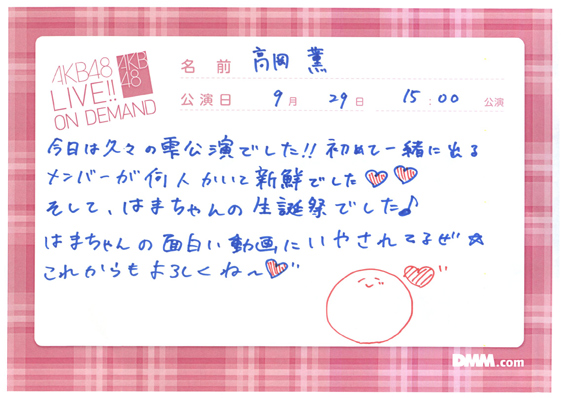 AKB48
LIVE!!
ON DEMAND
AKB
48
名 前 高岡 薫
公演日 9月 29日 15:00 公演
今日は久々の雫公演でした!! 初めて一緒に出る
メンバーが何人かいて新鮮でした♡♡
そして、はまちゃんの生誕祭でした♪
はまちゃんの面白い動画にいやされてるぜ☆
これからもよろしくね〜♡"
DMM.com